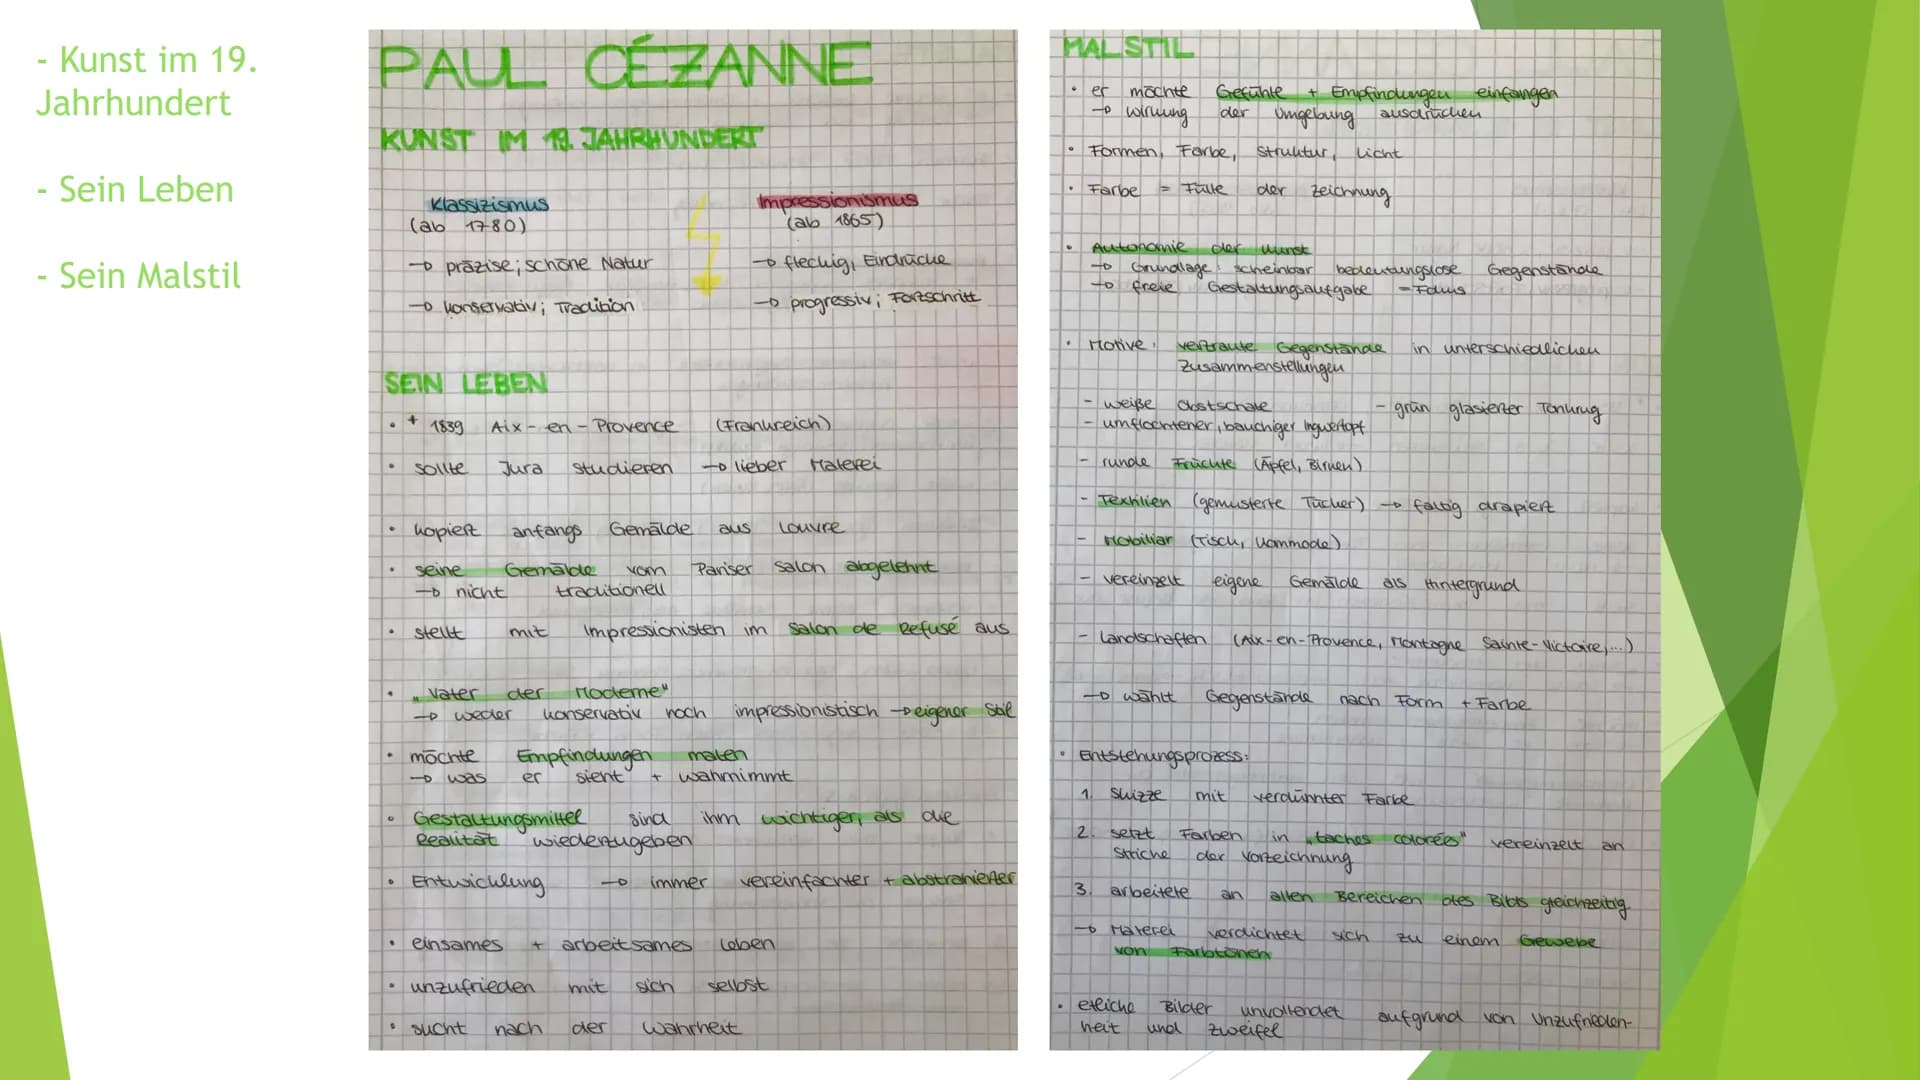 - Kunst im 19.
Jahrhundert
- Sein Leben
- Sein Malstil
PAUL CÉZANNE
KUNST IM 19. JAHRHUNDERT
Klassizismus
(ab 1780)
→ präzise; schöne Natur
→ konservativ; Tradition
Impressionismus
(ab 1865)
→ fleckig, Eindrücke
→ progressiv; Fortschritt
SEIN LEBEN
• + 1839 Aix-en-Provence (Frankreich)
• sollte Jura studieren → lieber Malerei
• kopiert anfangs Gemälde aus Louvre
• seine Gemälde vom Pariser Salon abgelehnt
→ nicht traditionell
• stellt mit Impressionisten im Salon de Refusé aus
• „Vater der Moderne"
→ weder konservativ noch impressionistisch → eigener Stil
• möchte Empfindungen malen
→ was er sieht + wahrnimmt
• Gestaltungsmittel sind ihm wichtiger, als die
Realität wiederzugeben
• Entwicklung → immer vereinfachter + abstrahierter
• einsames + arbeitsames Leben
• unzufrieden mit sich selbst
• sucht nach der Wahrheit
MALSTIL
• er möchte Gefühle + Empfindungen einfangen
→ Wirkung der Umgebung ausdrücken
• Formen, Farbe, Struktur, Licht
• Farbe = Fülle der Zeichnung
• Autonomie der Kunst
→ Grundlage: scheinbar bedeutungslose Gegenstände
→ freie Gestaltungsaufgabe = Fokus
• Motive: vertraute Gegenstände in unterschiedlichen
Zusammenstellungen
- weiße Obstschale - grün glasierter Tonkrug
- umflochtener, bauchiger Ingwertopf
- runde Früchte (Äpfel, Birnen)
- Textilien (gemusterte Tücher) → faltig drapiert
- Mobiliar (Tisch, Kommode)
- vereinzelt eigene Gemälde als Hintergrund
- Landschaften (Aix-en-Provence, Montagne Sainte-Victoire,...)
→ wählt Gegenstände nach Form + Farbe
• Entstehungsprozess:
1. Skizze mit verdünnter Farbe
2. setzt Farben in „taches colorées" vereinzelt an
Striche der Vorzeichnung
3. arbeitete an allen Bereichen des Bilds gleichzeitig
→ Malerei verdichtet sich zu einem Gewebe
von Farbtönen
• etliche Bilder unvollendet aufgrund von Unzufrieden-
heit und Zweifel